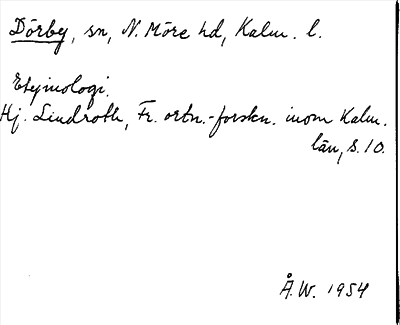 Dörby, sn, N. Möre hd, Kalm. l.
Etymologi.
Hj. Lindroth, Fr. ortn.-forskn. inom Kalm.
län, s. 10.
Å. W. 1954